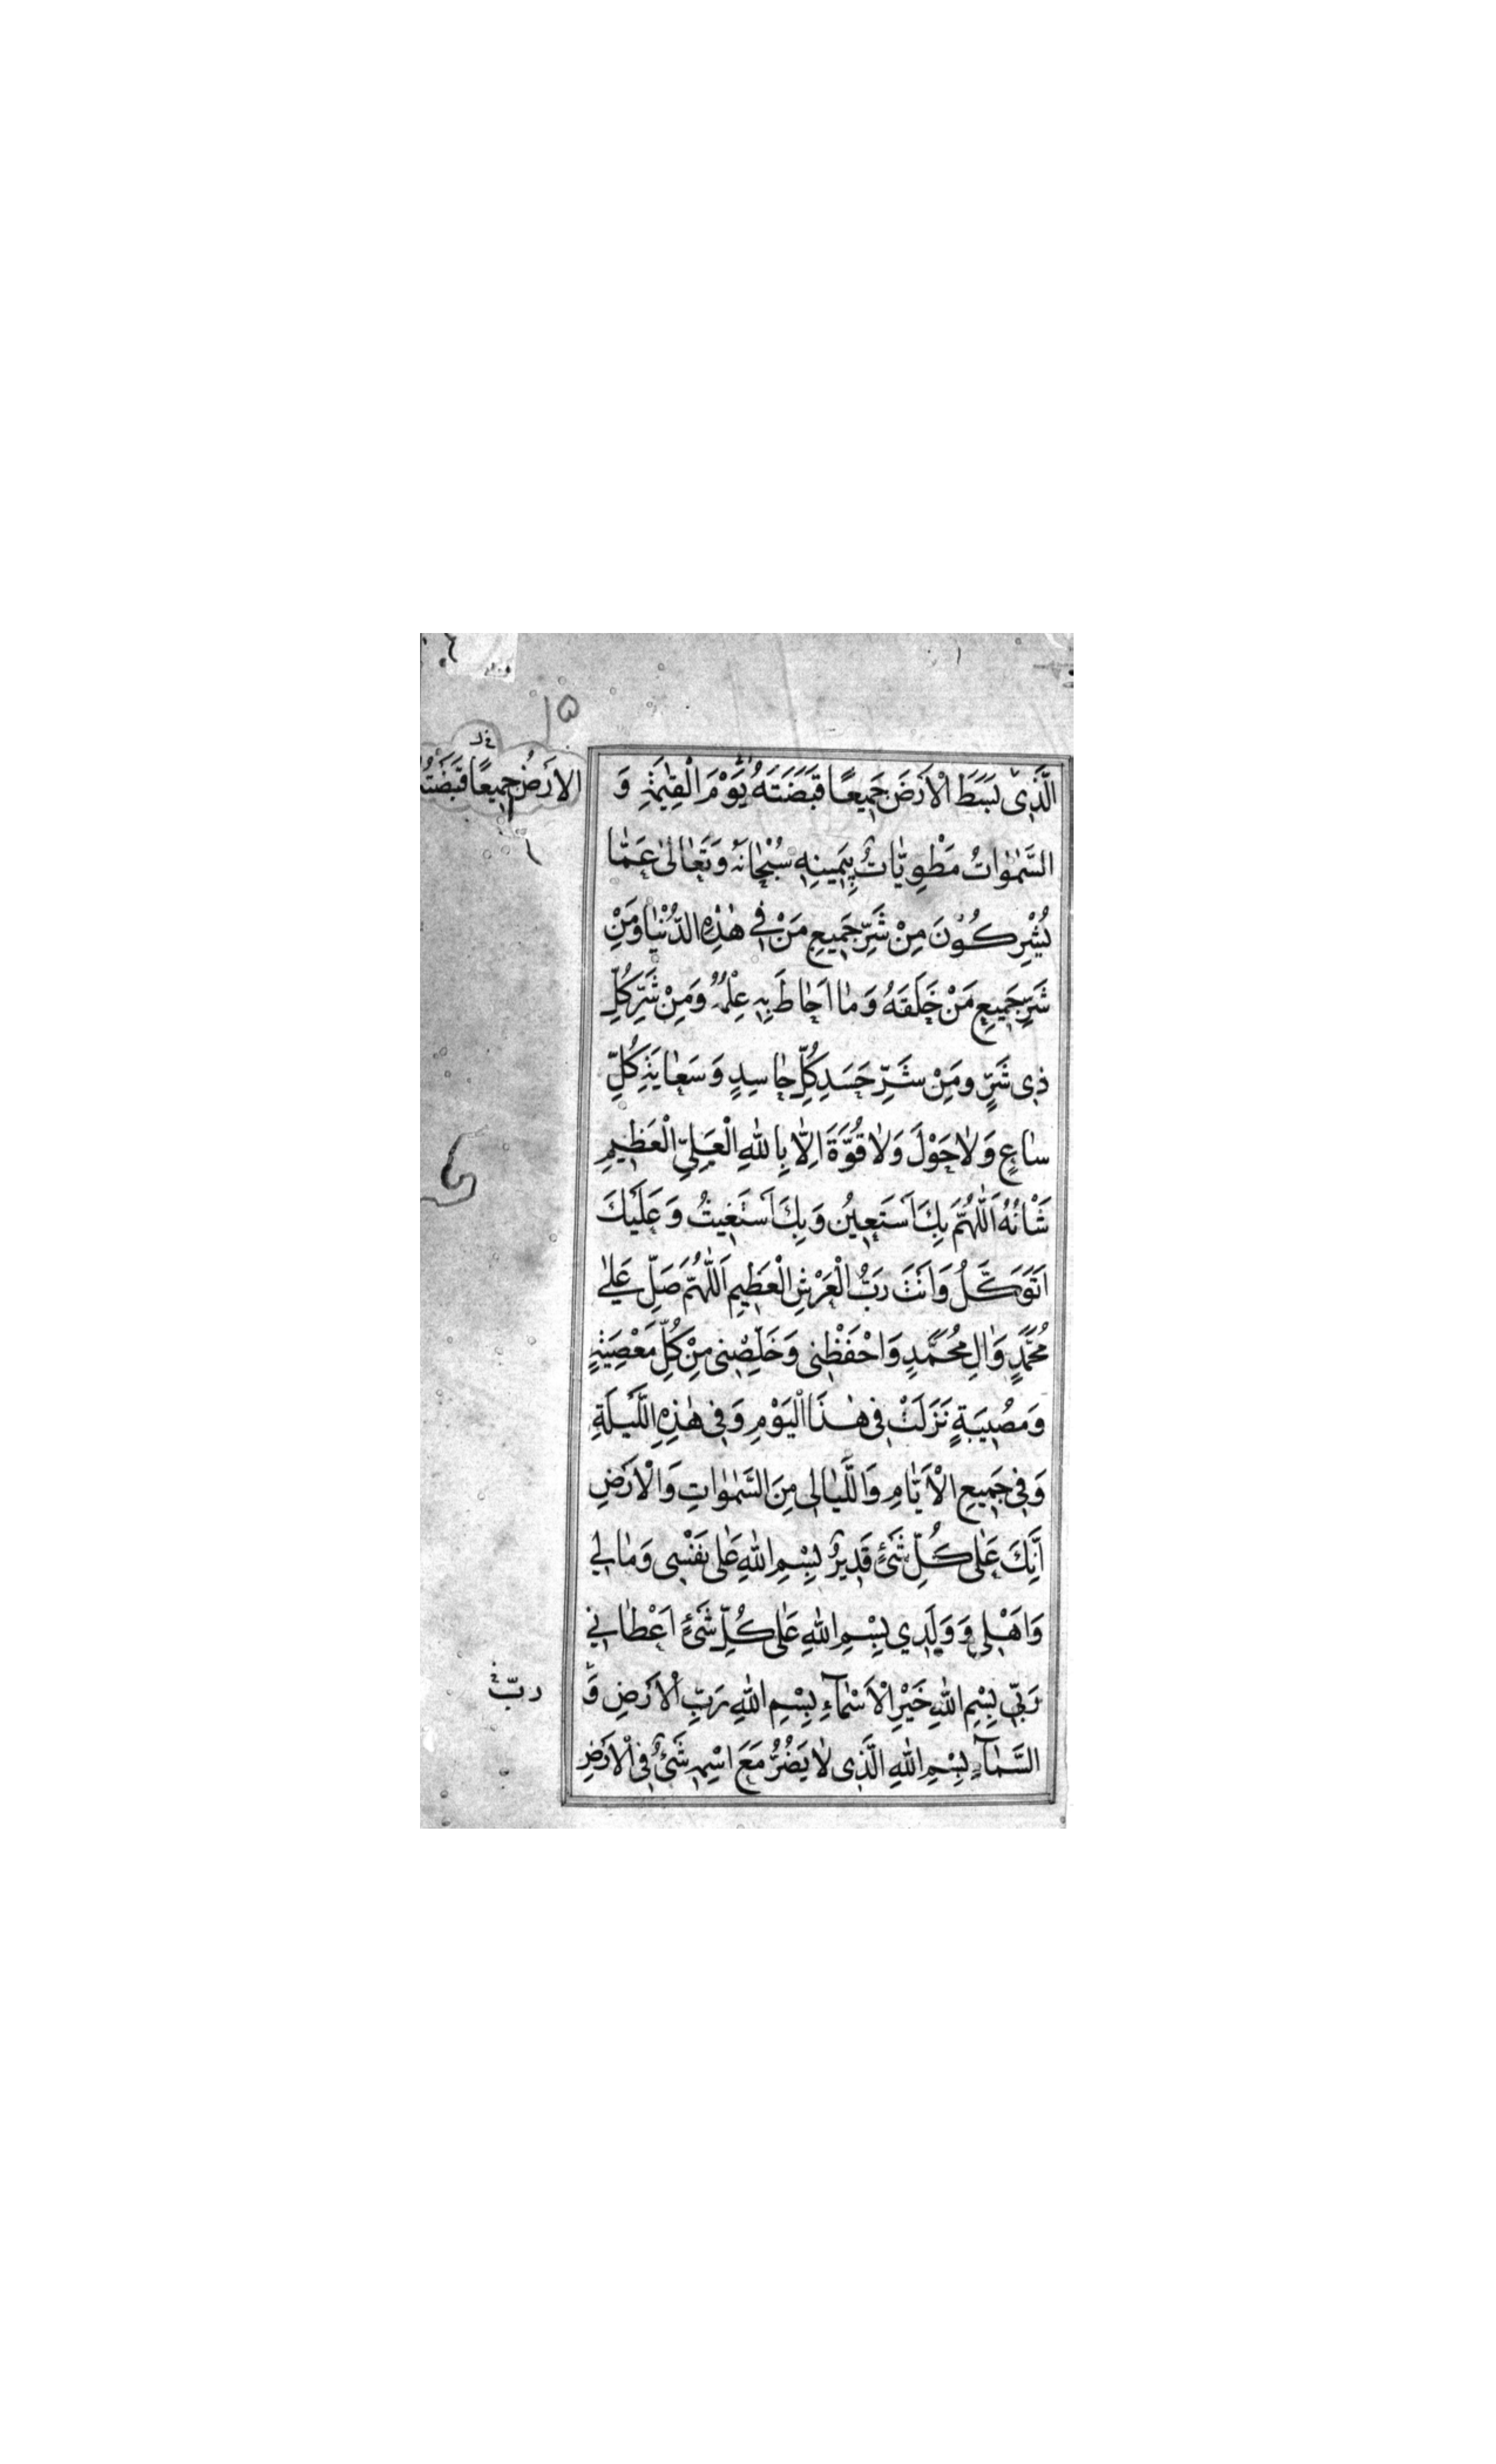 ۱۵
الَّذِی بَسَطَ الْاَرْضَ جَمِیعًا قَبَضَتَهُ یَوْمَ الْقِیٰمَةِ وَ
السَّمٰوٰاتُ مَطْوِیّٰاتٌ بِیَمِینِهِ سُبْحٰانَهُ وَتَعٰالىٰ عَمّٰا
یُشْرِکُونَ مِنْ شَرِّ جَمِیعِ مَنْ فِی هٰذِهِ الدُّنْیٰا وَمِنْ
شَرِّ جَمِیعِ مَنْ خَلَقَهُ وَمٰا اَحٰاطَ بِهِ عِلْمُهُ وَمِنْ شَرِّ کُلِّ
ذِی شَرٍّ وَمِنْ شَرِّ حَسَدِ کُلِّ حٰاسِدٍ وَسَعٰایَةِ کُلِّ
سٰاعٍ وَلٰا حَوْلَ وَلٰا قُوَّةَ اِلّٰا بِاللهِ الْعَلِیِّ الْعَظِیمِ
شَانُهُ اَللّٰهُمَّ بِكَ اَسْتَعِینُ وَبِكَ اَسْتَغِیثُ وَعَلَیْكَ
اَتَوَکَّلُ وَاَنْتَ رَبُّ الْعَرْشِ الْعَظِیمِ اَللّٰهُمَّ صَلِّ عَلىٰ
مُحَمَّدٍ وَاٰلِ مُحَمَّدٍ وَاحْفَظْنِی وَخَلِّصْنِی مِنْ کُلِّ مَعْصِیَةٍ
وَمُصِیبَةٍ نَزَلَتْ فِی هٰذَا الْیَوْمِ وَفِی هٰذِهِ اللَّیْلَةِ
وَفِی جَمِیعِ الْاَیّٰامِ وَاللَّیٰالِی مِنَ السَّمٰوٰاتِ وَالْاَرْضِ
اِنَّكَ عَلىٰ کُلِّ شَیْءٍ قَدِیرٌ بِسْمِ اللهِ عَلىٰ نَفْسِی وَمٰالِی
وَاَهْلِی وَوَلَدِی بِسْمِ اللهِ عَلىٰ کُلِّ شَیْءٍ اَعْطٰانِی
رَبِّی بِسْمِ اللهِ خَیْرِ الْاَسْمٰآءِ بِسْمِ اللهِ رَبِّ الْاَرْضِ وَ
السَّمٰآءِ بِسْمِ اللهِ الَّذِی لٰا یَضُرُّ مَعَ اسْمِهِ شَیْءٌ فِی الْاَرْضِ
الاَرْضُ جَمِیعًا قَبْضَتُهُ
ربّ